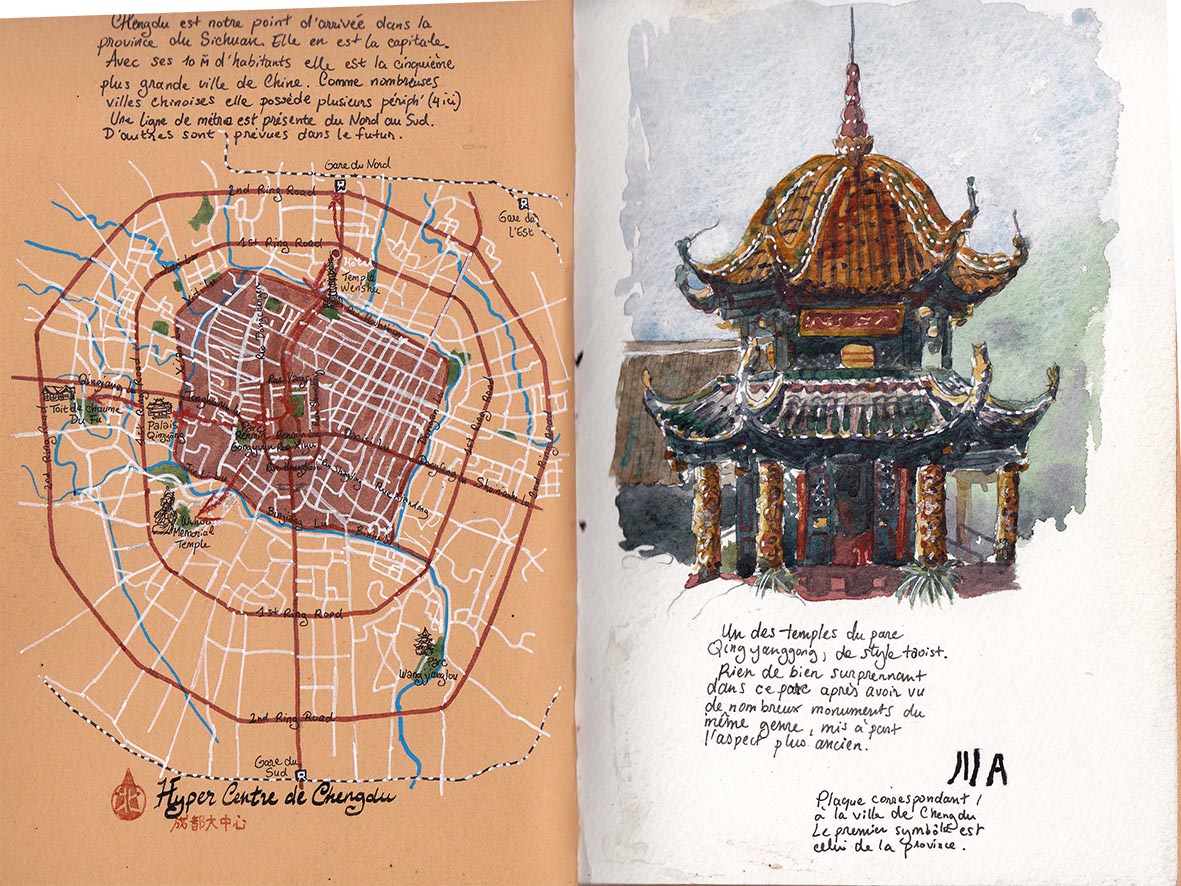 Chengdu est notre point d'arrivée dans la
province du Sichuan. Elle en est la capitale.
Avec ses 10 M d'habitants elle est la cinquième
plus grande ville de Chine. Comme nombreuses
villes chinoises elle possède plusieurs périph' (4 ici)
Une ligne de métro est présente du Nord au Sud.
D'autres sont prévues dans le futur.
Gare du Nord
2nd Ring Road
Gare de
l'Est
1st Ring Road
Hôtel
Temple
Wenshu
Qingyang
Toit de chaume
Du Fu
Palais
Qingyang
Parc
Renmin
1st Ring Road
1st Ring Road
2nd Ring Road
2nd Ring Road
Wuhou
Memorial
Temple
1st Ring Road
Parc
Wangjianglou
2nd Ring Road
Gare du
Sud
北
Hyper Centre de Chengdu
成都大中心
Un des temples du parc
Qingyanggong, de style taoist.
Rien de bien surprennant
dans ce parc après avoir vu
de nombreux monuments du
même genre, mis à part
l'aspect plus ancien.
川A
Plaque correspondant
à la ville de Chengdu
Le premier symbôle est
celui de la province.